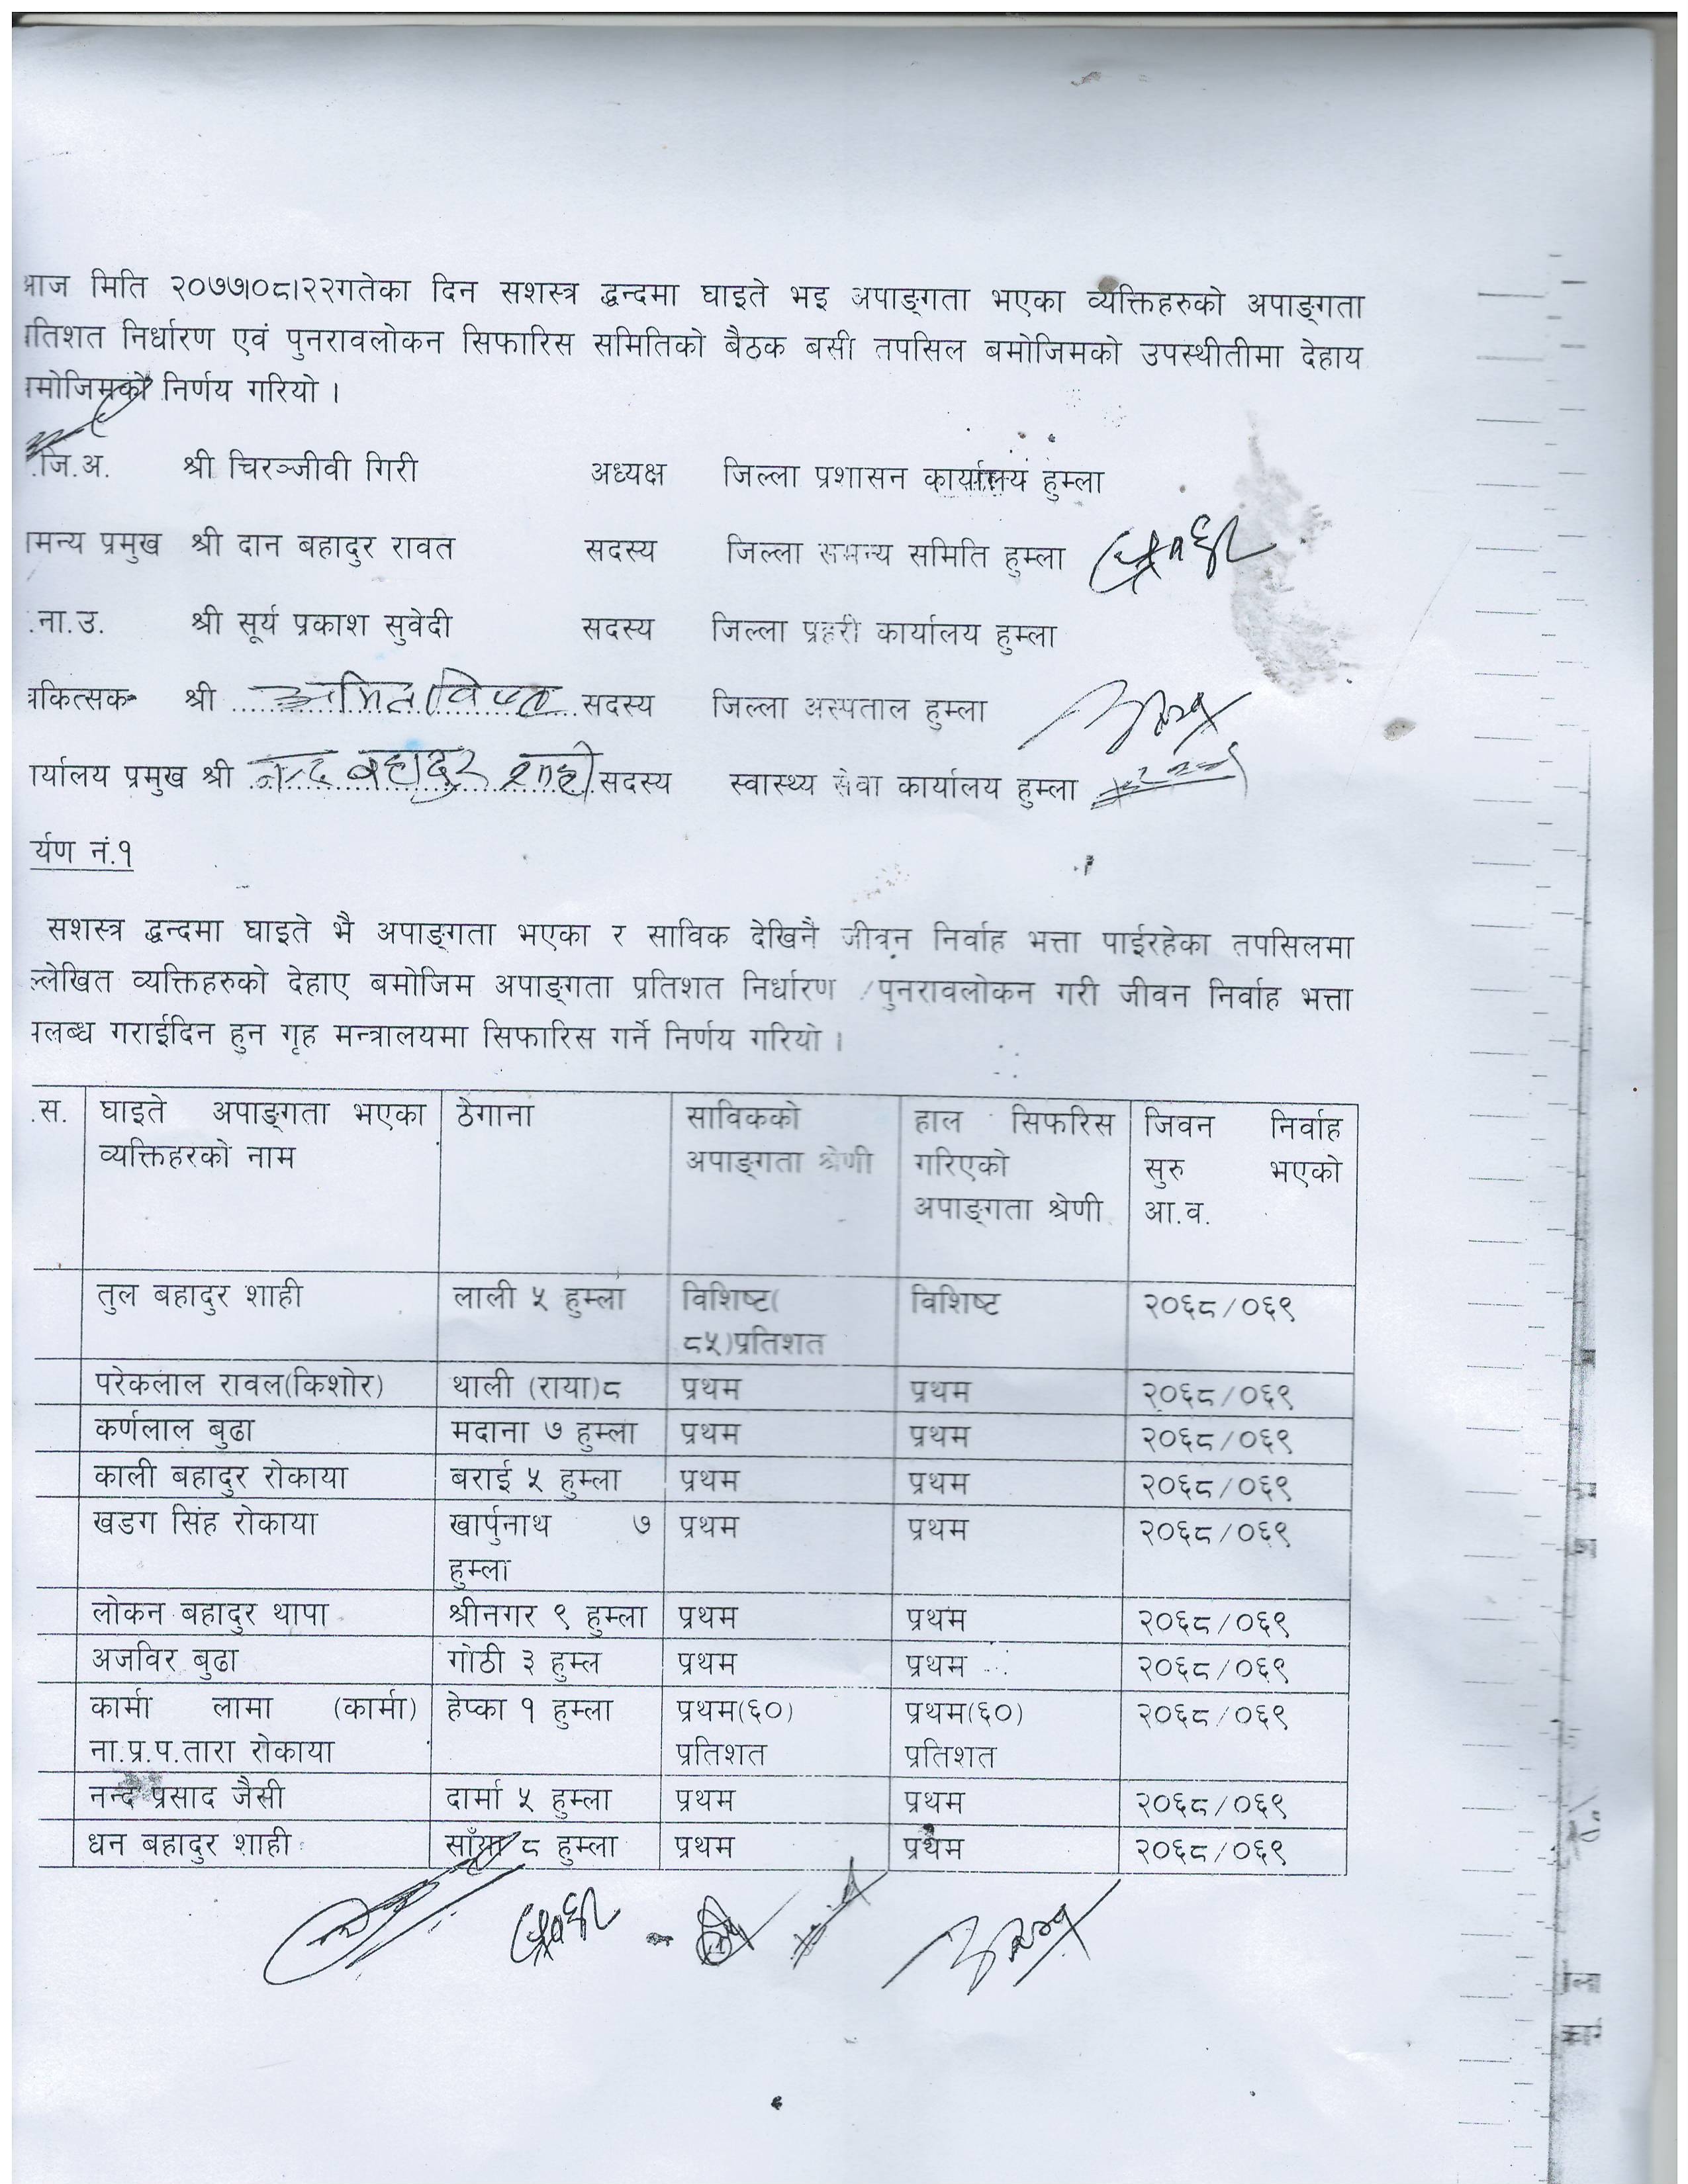 आज मिति २०७७।०८।२२गतेका दिन सशस्त्र द्धन्दमा घाइते भइ अपाङ्गता भएका व्यक्तिहरुको अपाङ्गता
तिशत निर्धारण एवं पुनरावलोकन सिफारिस समितिको बैठक बसी तपसिल बमोजिमको उपस्थीतीमा देहाय
मोजिमको निर्णय गरियो ।
.जि.अ. श्री चिरञ्जीवी गिरी अध्यक्ष जिल्ला प्रशासन कार्यालय हुम्ला
मन्य प्रमुख श्री दान बहादुर रावत सदस्य जिल्ला समन्य समिति हुम्ला
.ना.उ. श्री सूर्य प्रकाश सुवेदी सदस्य जिल्ला प्रहरी कार्यालय हुम्ला
कित्सक श्री सदस्य जिल्ला अस्पताल हुम्ला
र्यालय प्रमुख श्री नन्द बहादुर शाही सदस्य स्वास्थ्य सेवा कार्यालय हुम्ला
र्यण नं.१
सशस्त्र द्धन्दमा घाइते भै अपाङ्गता भएका र साविक देखिनै जीवन निर्वाह भत्ता पाईरहेका तपसिलमा
ल्लेखित व्यक्तिहरुको देहाए बमोजिम अपाङ्गता प्रतिशत निर्धारण /पुनरावलोकन गरी जीवन निर्वाह भत्ता
लब्ध गराईदिन हुन गृह मन्त्रालयमा सिफारिस गर्ने निर्णय गरियो ।
.स. घाइते अपाङ्गता भएका ठेगाना साविकको हाल सिफरिस जिवन निर्वाह
व्यक्तिहरको नाम अपाङ्गता श्रेणी गरिएको सुरु भएको
अपाङ्गता श्रेणी आ.व.
तुल बहादुर शाही लाली ५ हुम्ला विशिष्ट( विशिष्ट २०६८/०६९
८५)प्रतिशत
परेकलाल रावल(किशोर) थाली (राया)८ प्रथम प्रथम २०६८/०६९
कर्णलाल बुढा मदाना ७ हुम्ला प्रथम प्रथम २०६८/०६९
काली बहादुर रोकाया बराई ५ हुम्ला प्रथम प्रथम २०६८/०६९
खडग सिंह रोकाया खार्पुनाथ ७ प्रथम प्रथम २०६८/०६९
हुम्ला
लोकन बहादुर थापा श्रीनगर ९ हुम्ला प्रथम प्रथम २०६८/०६९
अजविर बुढा गोठी ३ हुम्ल प्रथम प्रथम २०६८/०६९
कार्मा लामा (कार्मा) हेप्का १ हुम्ला प्रथम(६०) प्रथम(६०) २०६८/०६९
ना.प्र.प.तारा रोकाया प्रतिशत प्रतिशत
नन्द प्रसाद जैसी दार्मा ५ हुम्ला प्रथम प्रथम २०६८/०६९
धन बहादुर शाही ८ हुम्ला प्रथम प्रथम २०६८/०६९